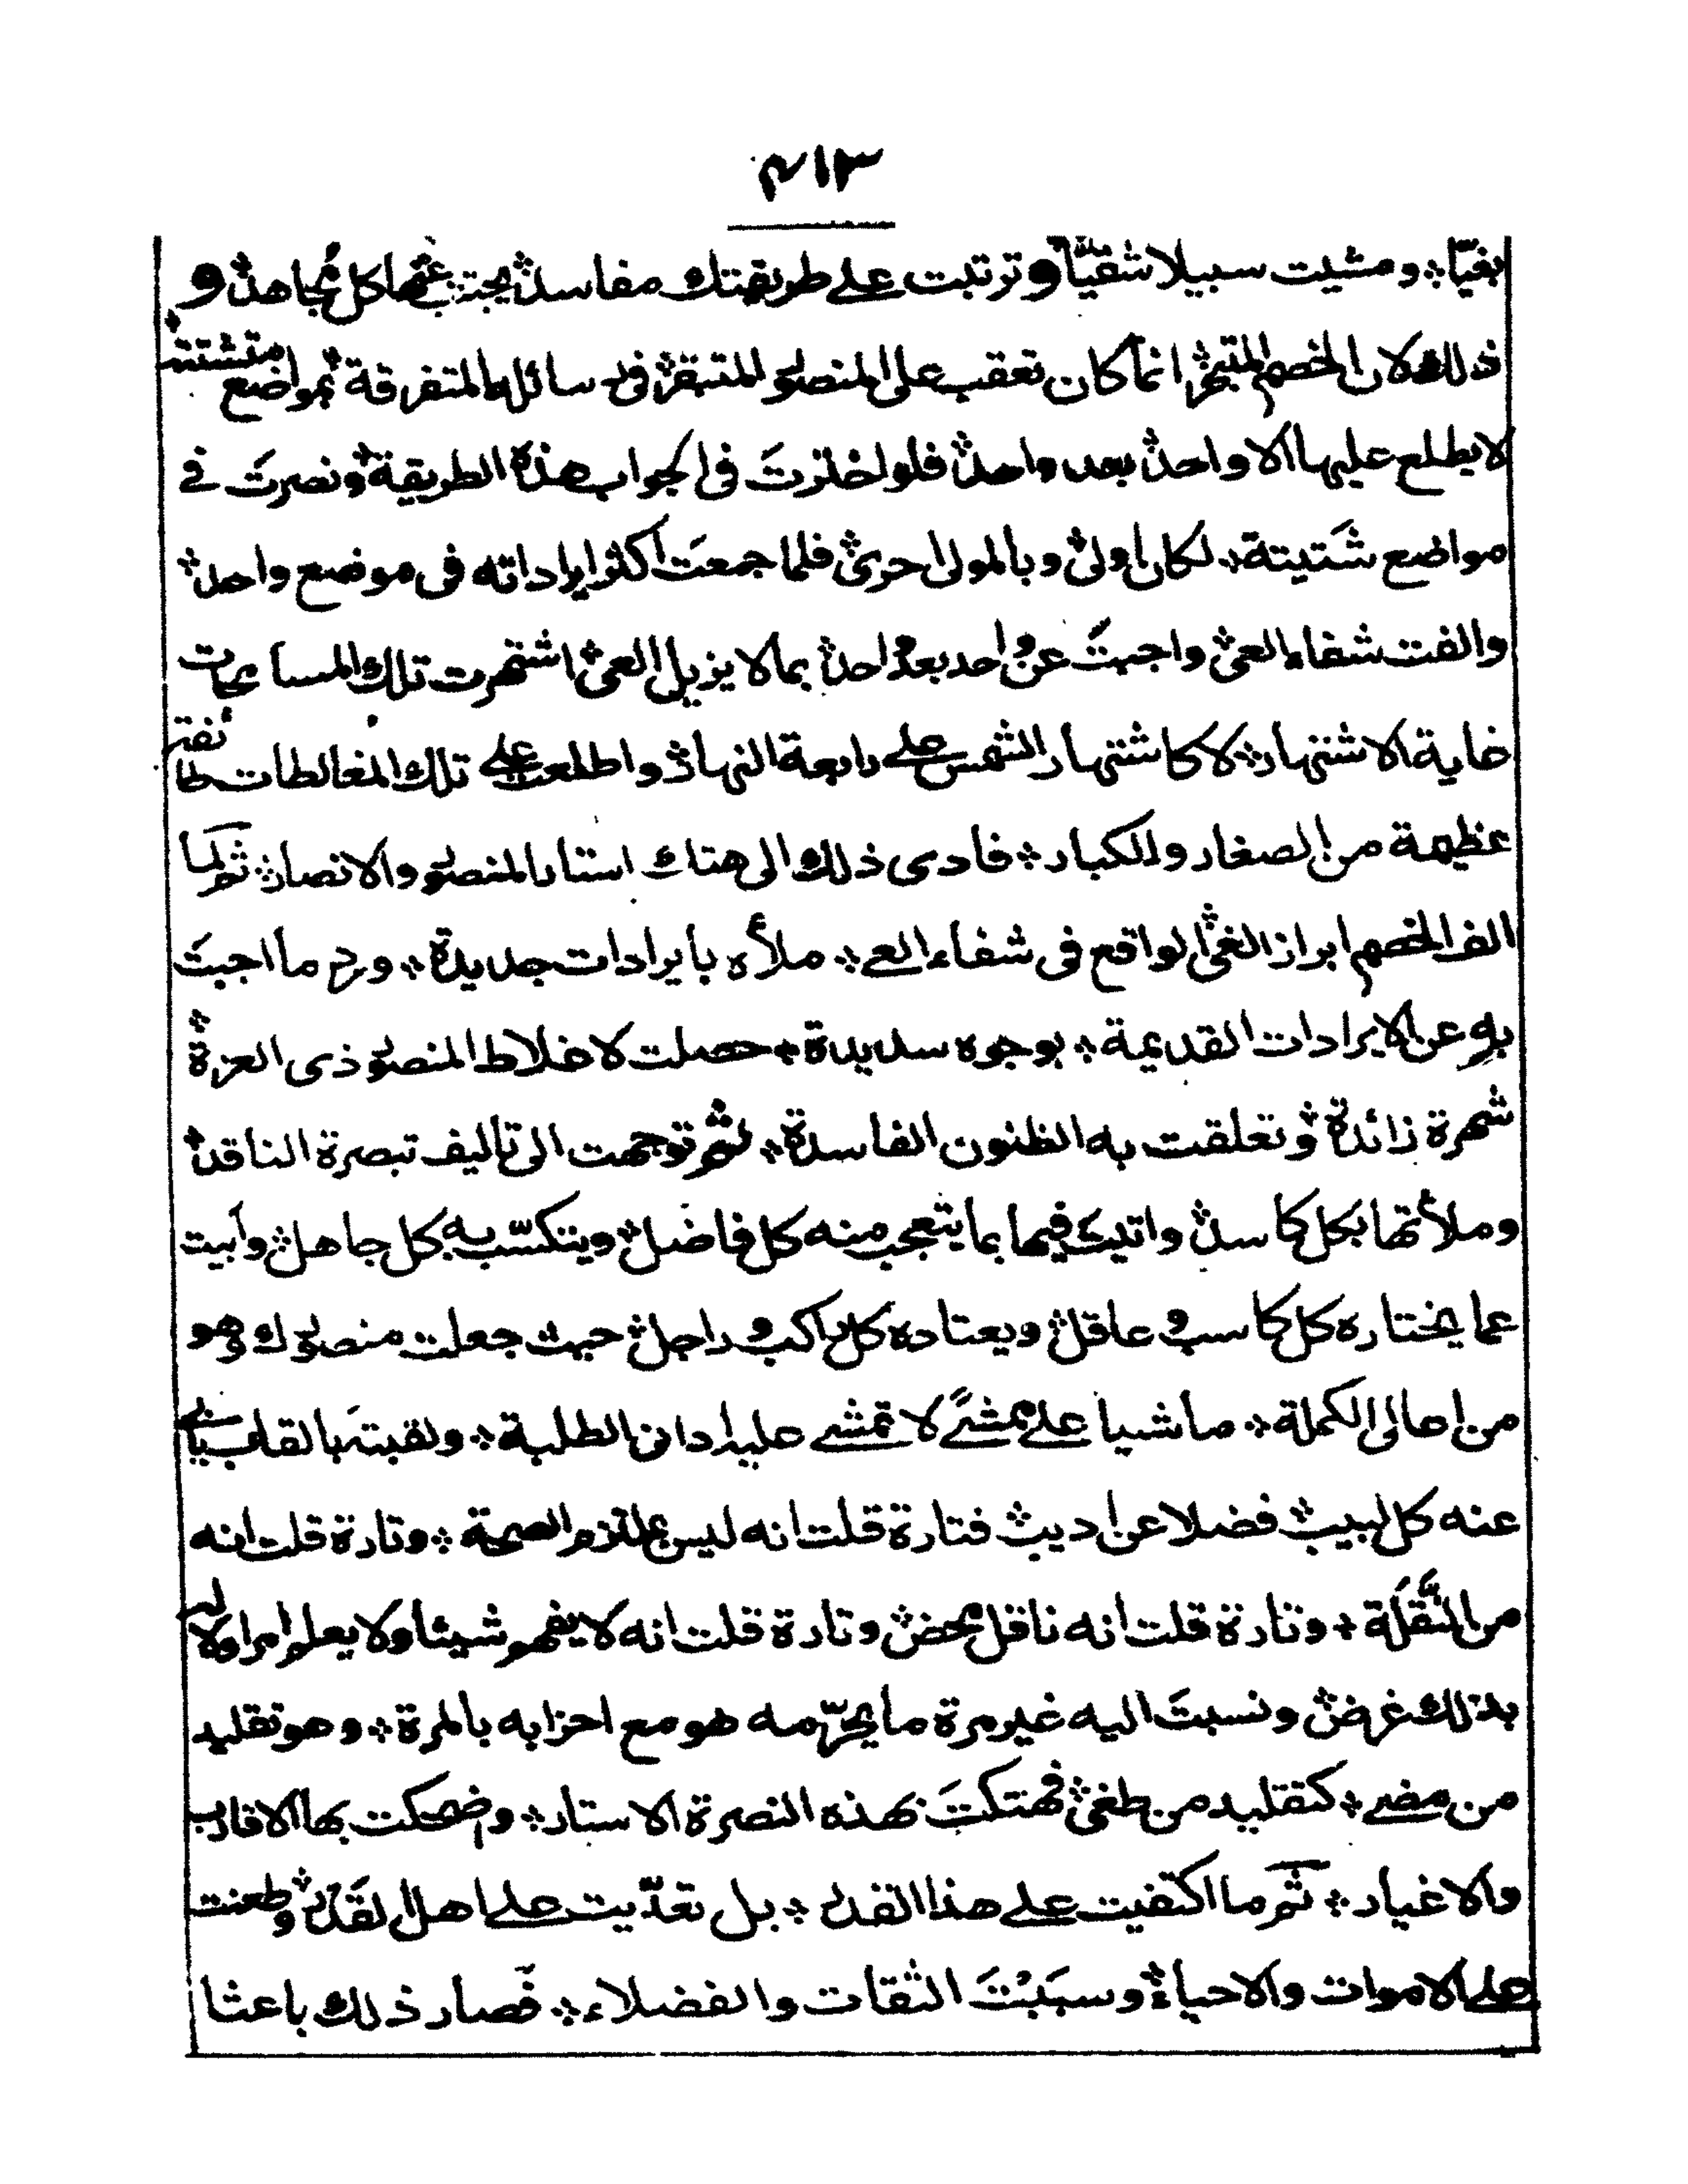 ٣١٣
بغيّا ۞ ومشيت سبيلا شقيّا ۞ وترتبت على طريقتك مفاسد ۞ يجتنب عنها كل مجاهد ۞ و
ذلك لان الخصم المتبحر انما كان تعقب على المنصور المتبقر في رسائله المتفرقة ۞ بمواضع متشتتة ۞
لا يطلع عليها الا واحد ۞ بعد واحد ۞ فلو اخترتَ في الجواب هذه الطريقة ۞ ونصرتَ في
مواضع شَتيتة ۞ لكان اولى ۞ وبالمولى احرى ۞ فلما جمعتَ اكثر ايراداته في موضع واحد ۞
والفت شفاء العى ۞ واجبتَ عن واحد بعد واحد ۞ بما لا يزيل العى ۞ اشتهرت تلك المسامحات
غاية الاشتهار ۞ لا كاشتهار الشمس على رابعة النهار ۞ واطلعت على تلك المغالطات طائفة
عظيمة من الصغار والكبار ۞ فادى ذلك الى هتك استار المنصور والانصار ۞ ثم لما
الف الخصم ابراز الغى الواقع في شفاء العى ۞ ملأه بايرادات جديدة ۞ ورد ما اجبتَ
به عن الايرادات القديمة ۞ بوجوه سديدة ۞ حصلت لاغلاط المنصور ذى العزة ۞
شهرة زائدة ۞ وتعلقت به الظنون الفاسدة ۞ ثم توجهت الى تاليف تبصرة الناقد ۞
وملأتها بكل كاسد ۞ واتيت فيها بما يتعجب منه كل فاضل ۞ ويتكسّب به كل جاهل ۞ وأبيت
عما يختاره كل كاسب وعاقل ۞ ويعتاده كل راكب وراجل ۞ حيث جعلت منصورك وهو
من اعالى الكملة ۞ ماشيا على ممشًى لا تمشى عليه ادانى الطلبة ۞ ولقبته بالقاب يأبى
عنه كل لبيب ۞ فضلا عن اديب ۞ فتارة قلت انه ليس بملتزم الصحة ۞ وتارة قلت انه
من النَّقَلَة ۞ وتارة قلت انه ناقل محض ۞ وتارة قلت انه لا يفهم شيئا ولا يعلم امرا ولا له
بذلك غرض ۞ ونسبتَ اليه غير مرة ما يحرّمه هو مع احزابه بالمرة ۞ وهو تقليد
من مضى ۞ كتقليد من طغى ۞ فهتكتَ بهذه النصرة الاستار ۞ وضحكت بها الاقارب
والاغيار ۞ ثم ما اكتفيت على هذا القدر ۞ بل تعدّيت على اهل القَدر ۞ وطعنت
على الاموات والاحياء ۞ وسبَبْتَ الثقات والفضلاء ۞ فصار ذلك باعثا